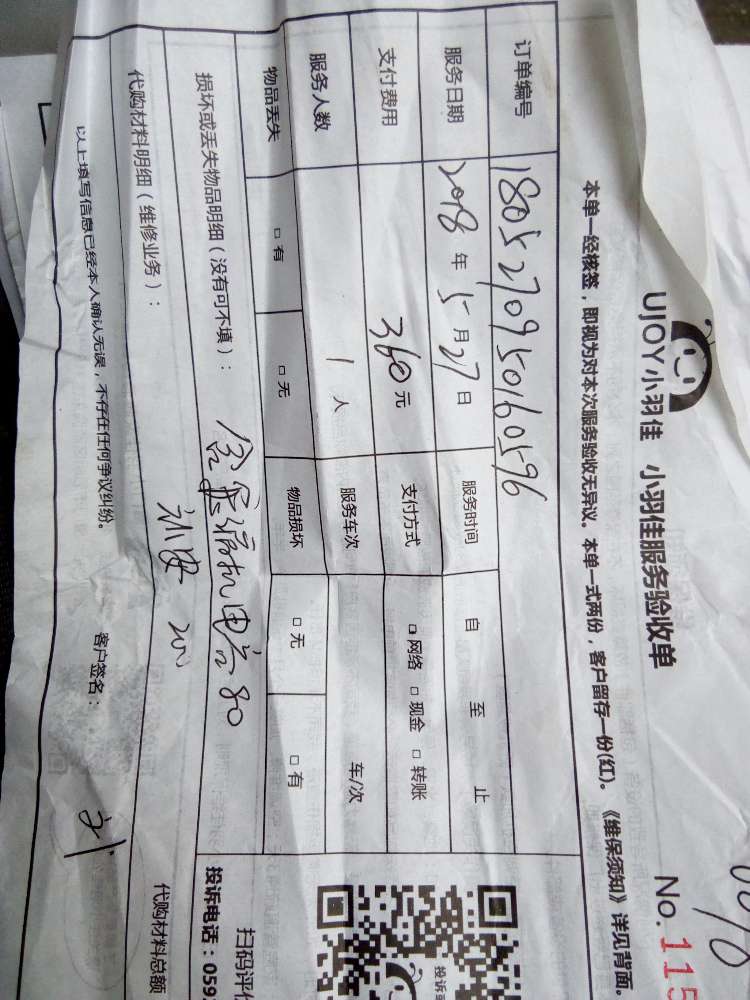 UJOY小羽佳 小羽佳服务验收单
No.115
本单一经核签，即视为对本次服务验收无异议。本单一式两份，客户留存一份(红)。《维保须知》详见背面。
订单编号 1805270950160596
服务日期 2018年5月27日 服务时间 自 至 止
支付费用 360元 支付方式 □网络 □现金 □转账
服务人数 1人 服务车次 车/次
物品丢失 □有 □无 物品损坏 □无 □有
损坏或丢失物品明细（没有可不填）：
电容80
代购材料明细（维修业务）：
200
代购材料总额
以上填写信息已经本人确认无误，不存在任何争议纠纷。
客户签名：
投诉
扫码评价
投诉电话：059